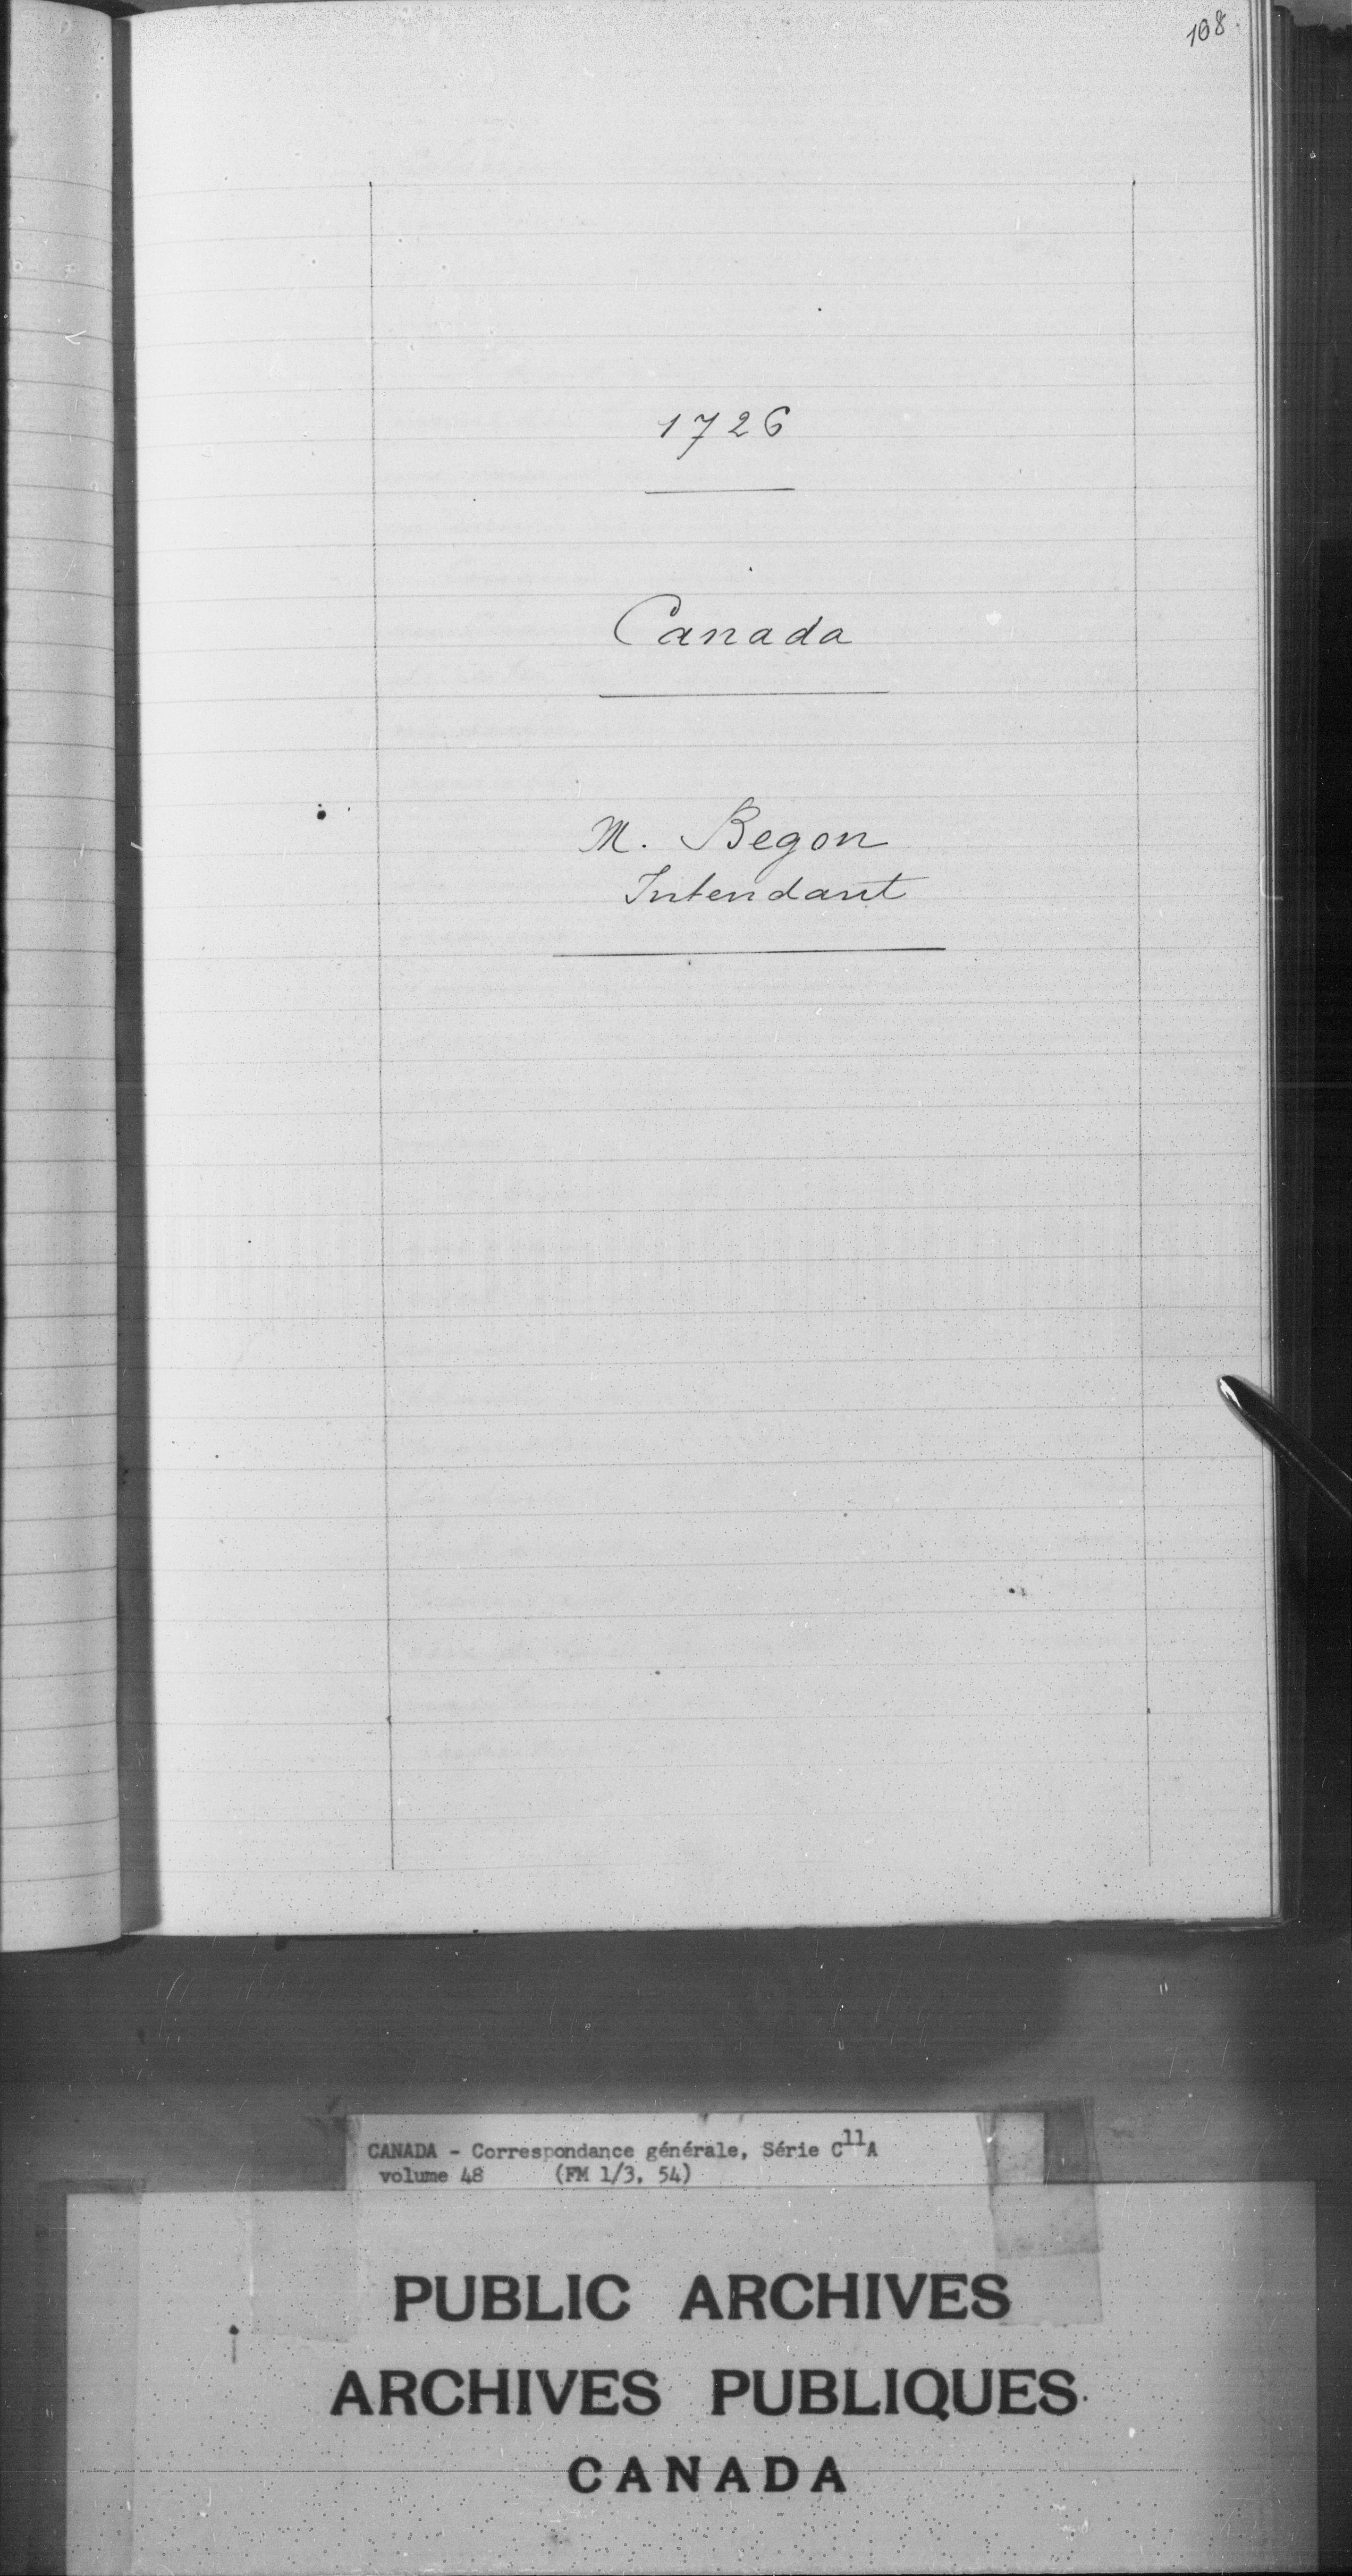 168.
1726
Canada
M. Begon
Intendant
CANADA - Correspondance générale, Série C11A
volume 48 (FM 1/3, 54)
PUBLIC ARCHIVES
ARCHIVES PUBLIQUES
CANADA